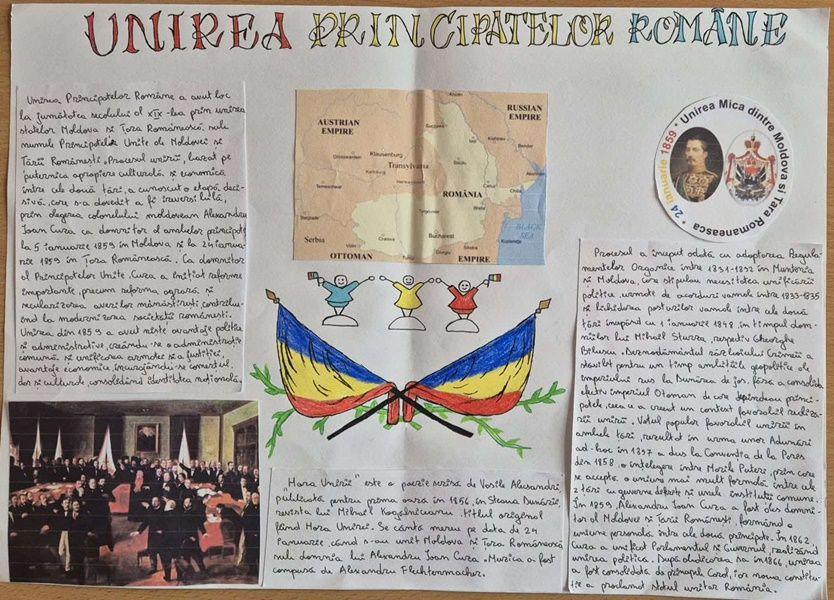 UNIREA PRINCIPATELOR ROMÂNE
Unirea Principatelor Române a avut loc
la jumătatea secolului al XIX-lea prin unirea
statelor Moldova și Țara Românească sub
numele Principatele Unite ale Moldovei și
Țării Românești. Procesul unirii, bazat pe
puternica apropiere culturală și economică
între cele două țări, a cunoscut o etapă deci-
sivă, care s-a dovedit a fi ireversibilă,
prin alegerea colonelului moldovean Alexandru
Ioan Cuza ca domnitor al ambelor principate
la 5 ianuarie 1859 în Moldova și la 24 ianua-
rie 1859 în Țara Românească. Ca domnitor
al Principatelor Unite, Cuza a inițiat reforme
importante, precum reforma agrară și
secularizarea averilor mănăstirești, contribu-
ind la modernizarea societății românești.
Unirea din 1859 a avut niște avantaje politice
și administrative, creându-se o administrație
comună și unificarea armatei și a justiției,
avantaje economice, încurajându-se comerțul,
dar și culturale, consolidând identitatea națională.
AUSTRIAN
EMPIRE
RUSSIAN
EMPIRE
Klausenburg
Transylvania
ROMÂNIA
Bucharest
BLACK
SEA
Serbia
OTTOMAN
EMPIRE
24 ianuarie 1859 * Unirea Mica dintre Moldova si Tara Romaneasca *
Procesul a început odată cu adoptarea Regula-
mentelor Organice între 1831-1832 în Muntenia
și Moldova, care stipulau necesitatea unificării
politice, urmate de acorduri vamale între 1833-1835
și lichidarea posturilor vamale între cele două
țări începând cu 1 ianuarie 1848, în timpul dom-
niilor lui Mihail Sturza, respectiv Gheorghe
Bibescu. Deznodământul războiului Crimeii a
stavilit pentru un timp ambițiile geopolitice ale
imperiului rus la Dunărea de jos, fără a consolida
efectiv imperiul Otoman de care depindeau princi-
patele, ceea ce a creat un context favorabil realiză-
rii unirii. Votul popular favorabil unirii în
ambele țări, rezultat în urma unor Adunări
ad-hoc în 1857 a dus la Convenția de la Paris
din 1858, o înțelegere între Marile Puteri, prin care
se accepta o uniune mai mult formală între cele
2 țări cu guverne diferite și unele instituții comune.
În 1859 Alexandru Ioan Cuza a fost ales domni-
tor al Moldovei și Țării Românești, formând o
uniune personală între cele două principate. În 1862,
Cuza a unificat Parlamentul și Guvernul, realizând
unirea politică. După abdicarea sa în 1866, unirea
a fost consolidată de principele Carol, iar noua constitu-
ție a proclamat statul unitar România.
„Hora Unirii" este o poezie scrisă de Vasile Alecsandri,
publicată pentru prima oară în 1856, în Steaua Dunării,
revista lui Mihail Kogălniceanu. Titlul original
fiind Hora Unirei. Se cântă mereu pe data de 24
ianuarie, când s-au unit Moldova și Țara Românească
sub domnia lui Alexandru Ioan Cuza. Muzica a fost
compusă de Alexandru Flechtenmacher.